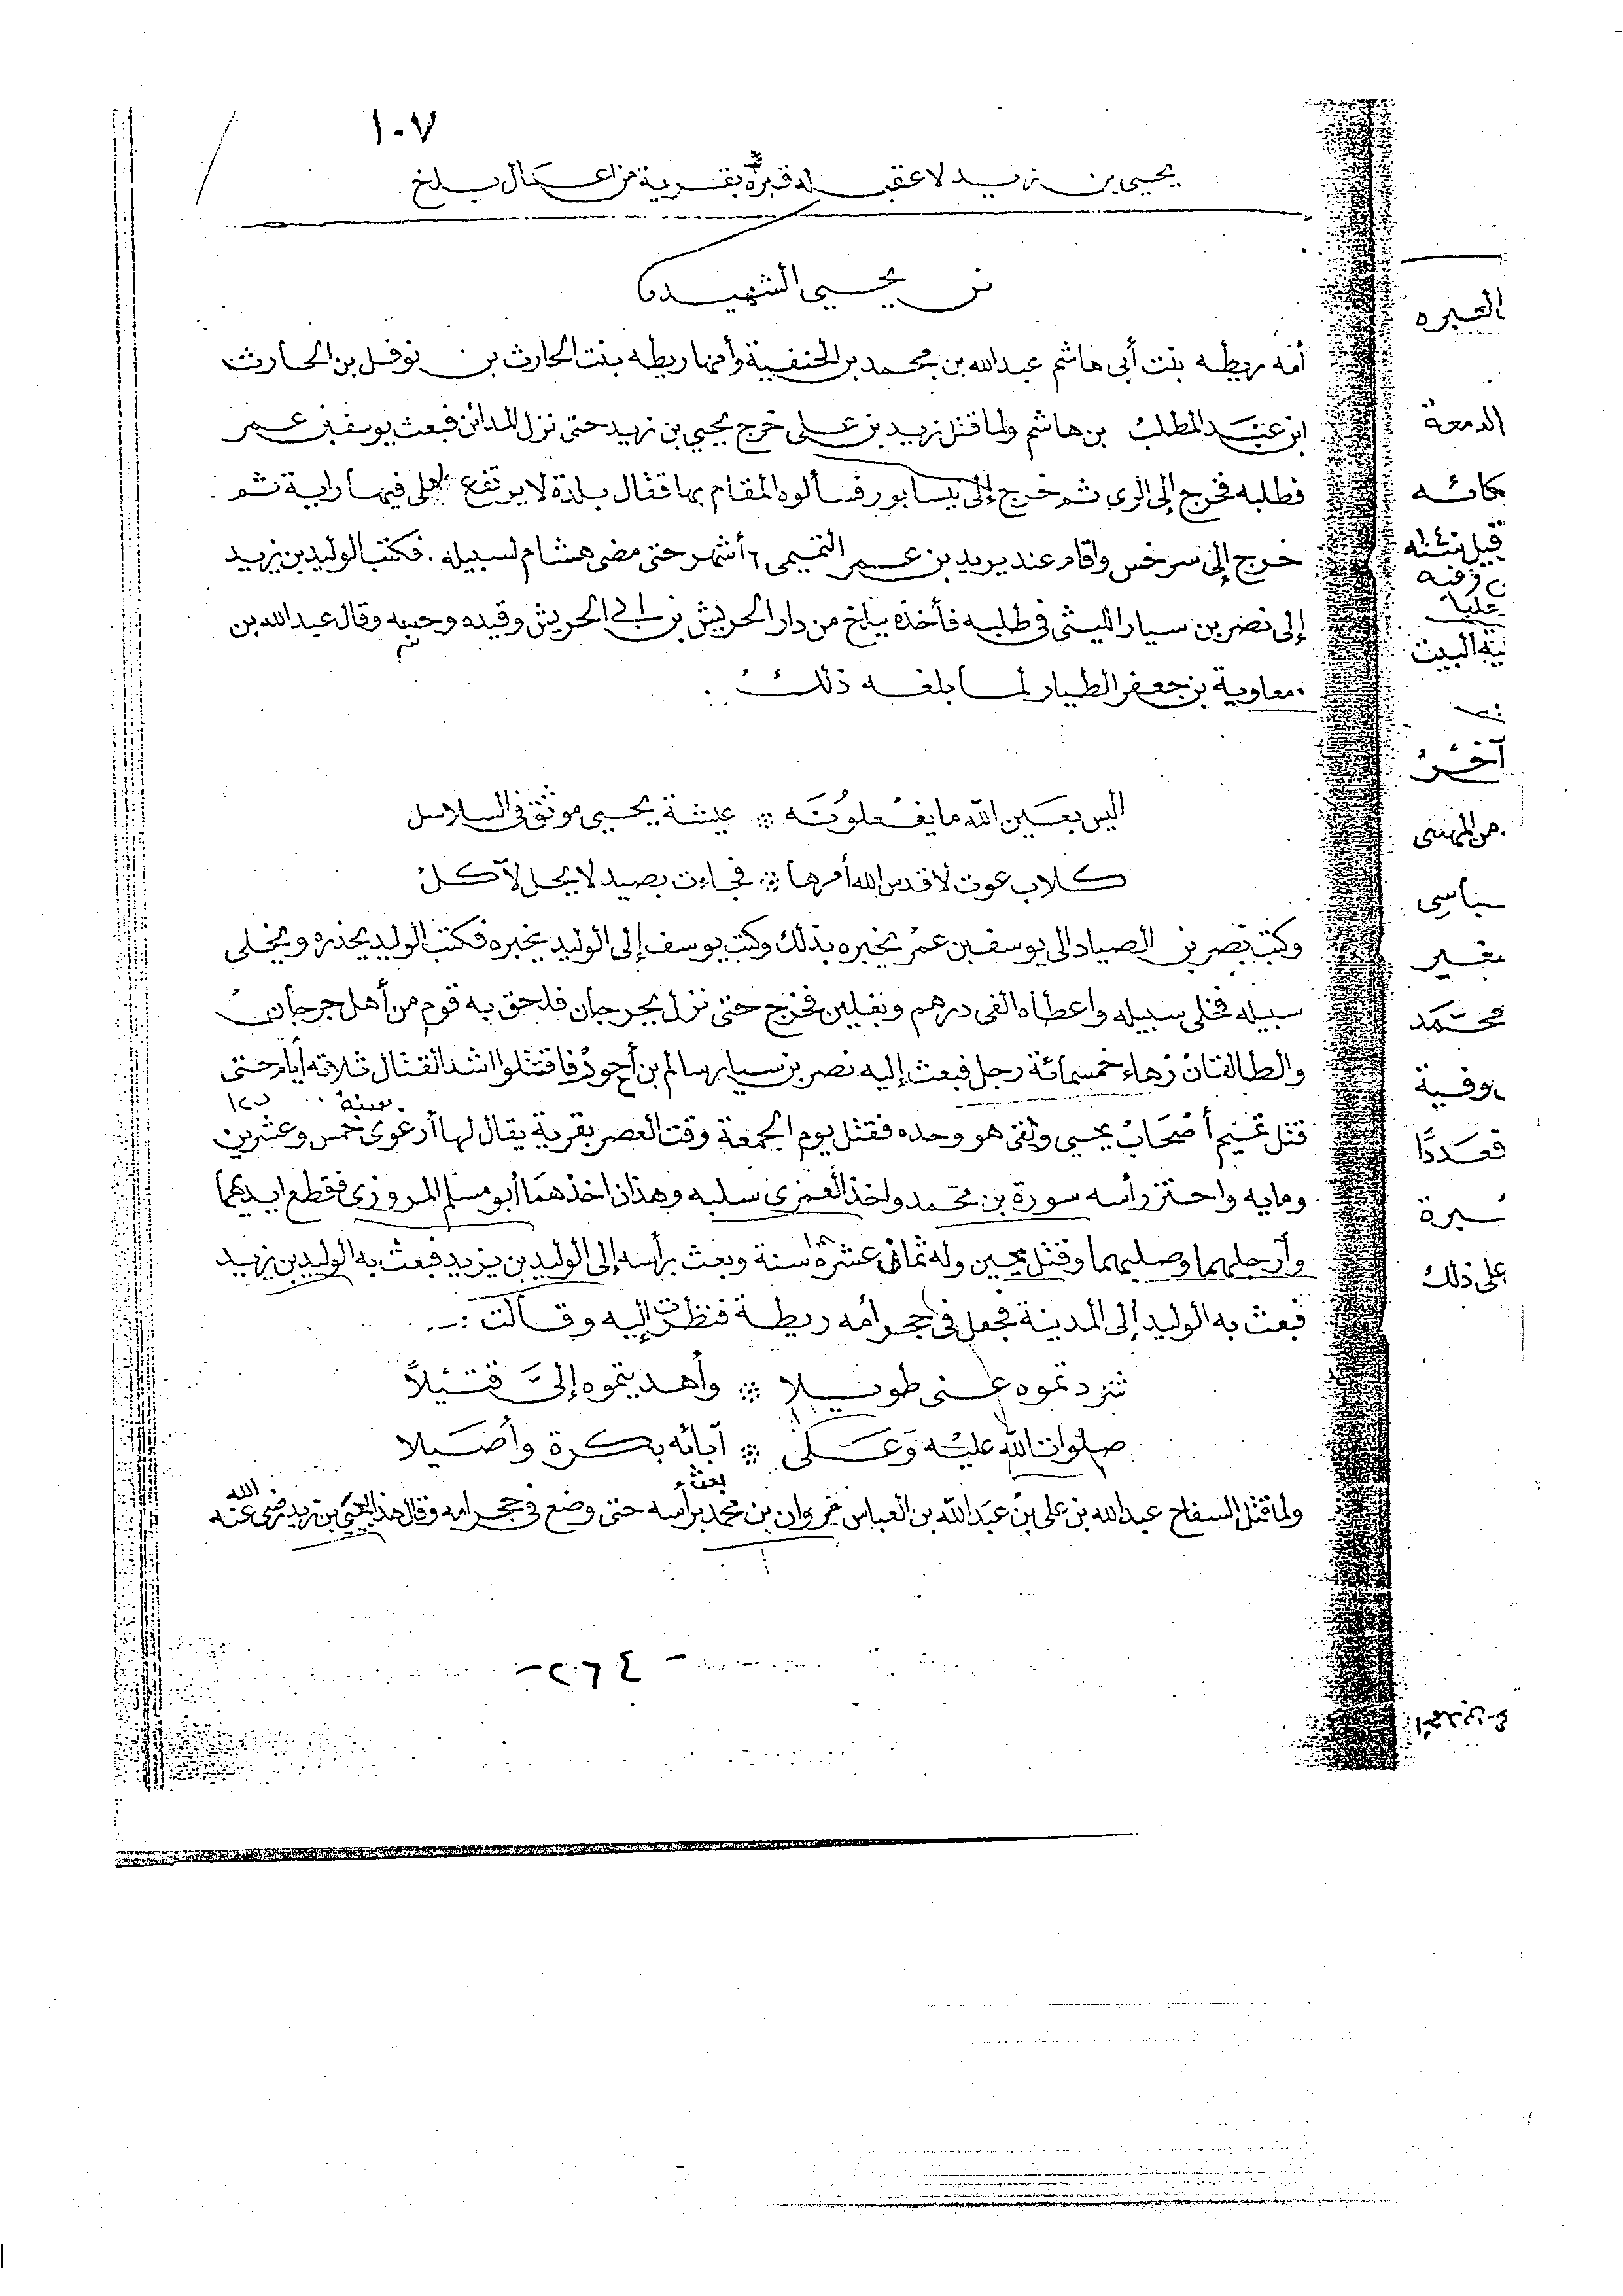 ١٠٧
يحيى بن زيد لا عقب له قبره بقرية من اعمال بلخ
يحيى الشهيد
أمه ريطه بنت أبي هاشم عبدالله بن محمد بن الحنفية وأمها ريطه بنت الحارث بن نوفل بن الحارث
ابن عبد المطلب بن هاشم ولما قتل زيد بن علي خرج يحيي بن زيد حتى نزل المدائن فبعث يوسف بن عمر
فطلبه فخرج إلى الري ثم خرج إلى نيسابور فسألوه المقام بها فقال بلدة لا يرتفع لعلي فيها راية ثم
خرج إلى سرخس واقام عند يريد بن عمر التميمي ٦ أشهر حتى مضى هشام لسبيله . فكتب الوليد بن يزيد
إلى نصر بن سيار الليثي في طلبه فأخذه ببلخ من دار الحريش بن أبي الحريش وقيده وحبسه وقال عبدالله بن
معاوية بن جعفر الطيار لما بلغه ذلك :
اليس بعين الله ما يفعلونه ❊ عيشة يحيى موثق في السلاسل
كلاب عوت لا قدس الله أمرها ❊ فجاءت بصيد لا يحل لآكل
وكتب نصر بن الصياد الى يوسف بن عمر يخبره بذلك وكتب يوسف إلى الوليد يخبره فكتب الوليد يحذره ويخلى
سبيله فخلى سبيله واعطاه الفى درهم وبغلين فخرج حتى نزل بجرجان فلحق به قوم من أهل جرجان
والطالقان زهاء خمسمائة رجل فبعث إليه نصر بن سيار سالم بن أحوز فاقتتلوا اشد القتال ثلاثه أيام حتى
سنة ١٢٥
قتل جميع أصحاب يحيى وبقى هو وحده فقتل يوم الجمعة وقت العصر بقرية يقال لها أرغوى خمس وعشرين
ومايه واحتز رأسه سورة بن محمد واخذ العنزي سلبه وهذان اخذهما أبو مسلم المروزي فقطع ايديهما
وأرجلهما وصلبهما وقتل يحيى وله ثماني عشرة ١٨ سنة وبعث برأسه إلى الوليد بن يزيد فبعث به الوليد بن يزيد
فبعث به الوليد إلى المدينة فجعل في حجر أمه ريطة فنظرت إليه وقالت :-
شردتموه عنى طويلا ❊ وأهديتموه إليّ قتيلاً
صلوات الله عليه وعلى ❊ آبائه بكرة وأصيلا
ولما قتل السفاح عبدالله بن علي بن عبدالله بن العباس مروان بن محمد بعث برأسه حتى وضع في حجر امه وقال هذا بيحيى بن زيد رضي الله عنه
-٢٦٤-
العبره
الدمعة
كائه
عليا
آخر
سياسي
بغير
محتمد
يوفية
قعددًا
سيرة
على ذلك